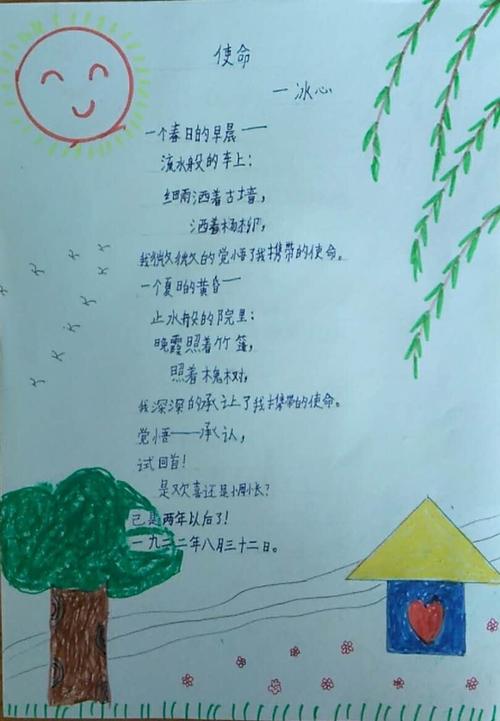 使命
一冰心
一个春日的早晨——
流水般的车上：
细雨洒着古墙，
洒着杨柳，
我微微的觉悟了我携带的使命。
一个夏日的黄昏——
止水般的院里：
晚霞照着竹篷，
照着槐树，
我深深的承认了我携带的使命。
觉悟——承认，
试回首！
是欢喜还是惆怅？
已是两年以后了！
一九二二年八月三十二日。